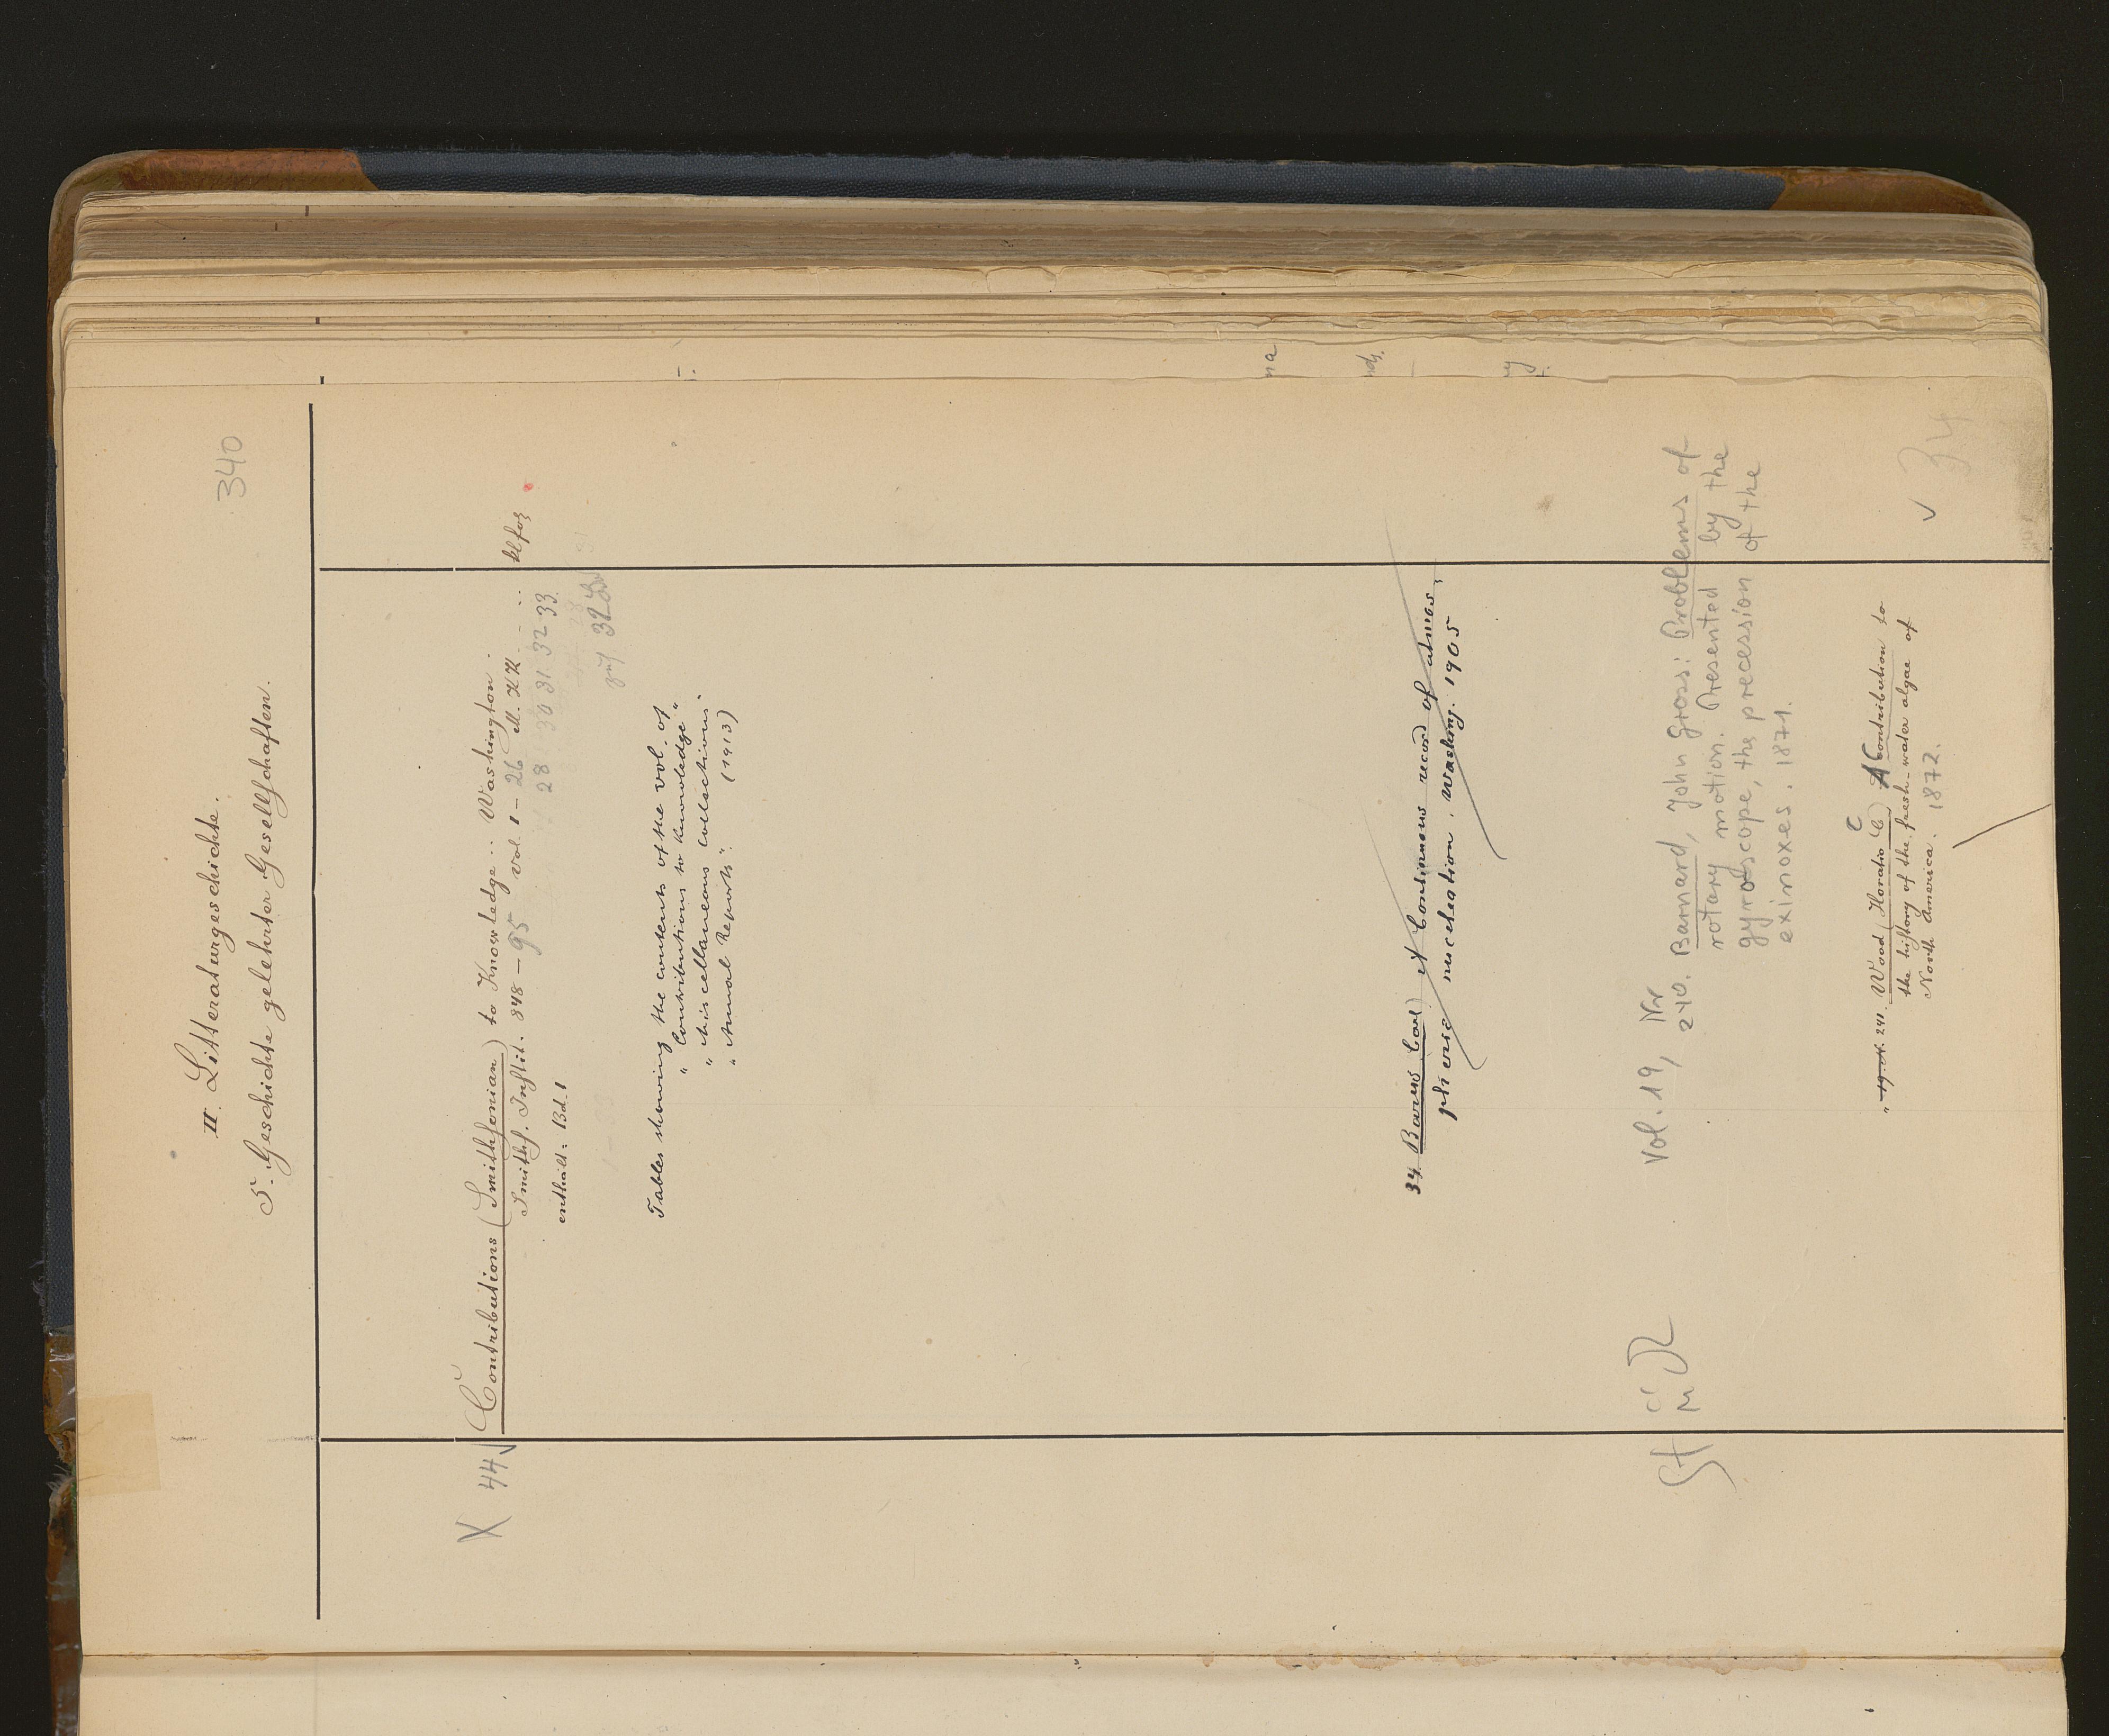 340
II. Litteraturgeschichte.
5. Geschichte gelehrter Gesellschaften.
X 44 Contributions (Smithsonian) to Knowledge .. Washington.
Smiths. Instit. 848-95 Vol. 1-26 ill. KK
28 30 31 32 33.
enthält: Bd. 1
32
Tables showing the contents of the vol. of
"Contributions to knowledge"
"Miscellaneous Collections
"Annual Reports". (1913)
34 Barus Carl) A Continuous record of atmos,
pheric nucleation, Washing. 1905
Vol. 19, Nr
240. Barnard, John Gross: Problems of
rotary motion. Presented by the
gyroscope, the precession of the
exinoxes. 1871.
" 19. 241. Wood (Horatio C) A Contribution to
the history of the fresh-water algae of
North America. 1872.
34